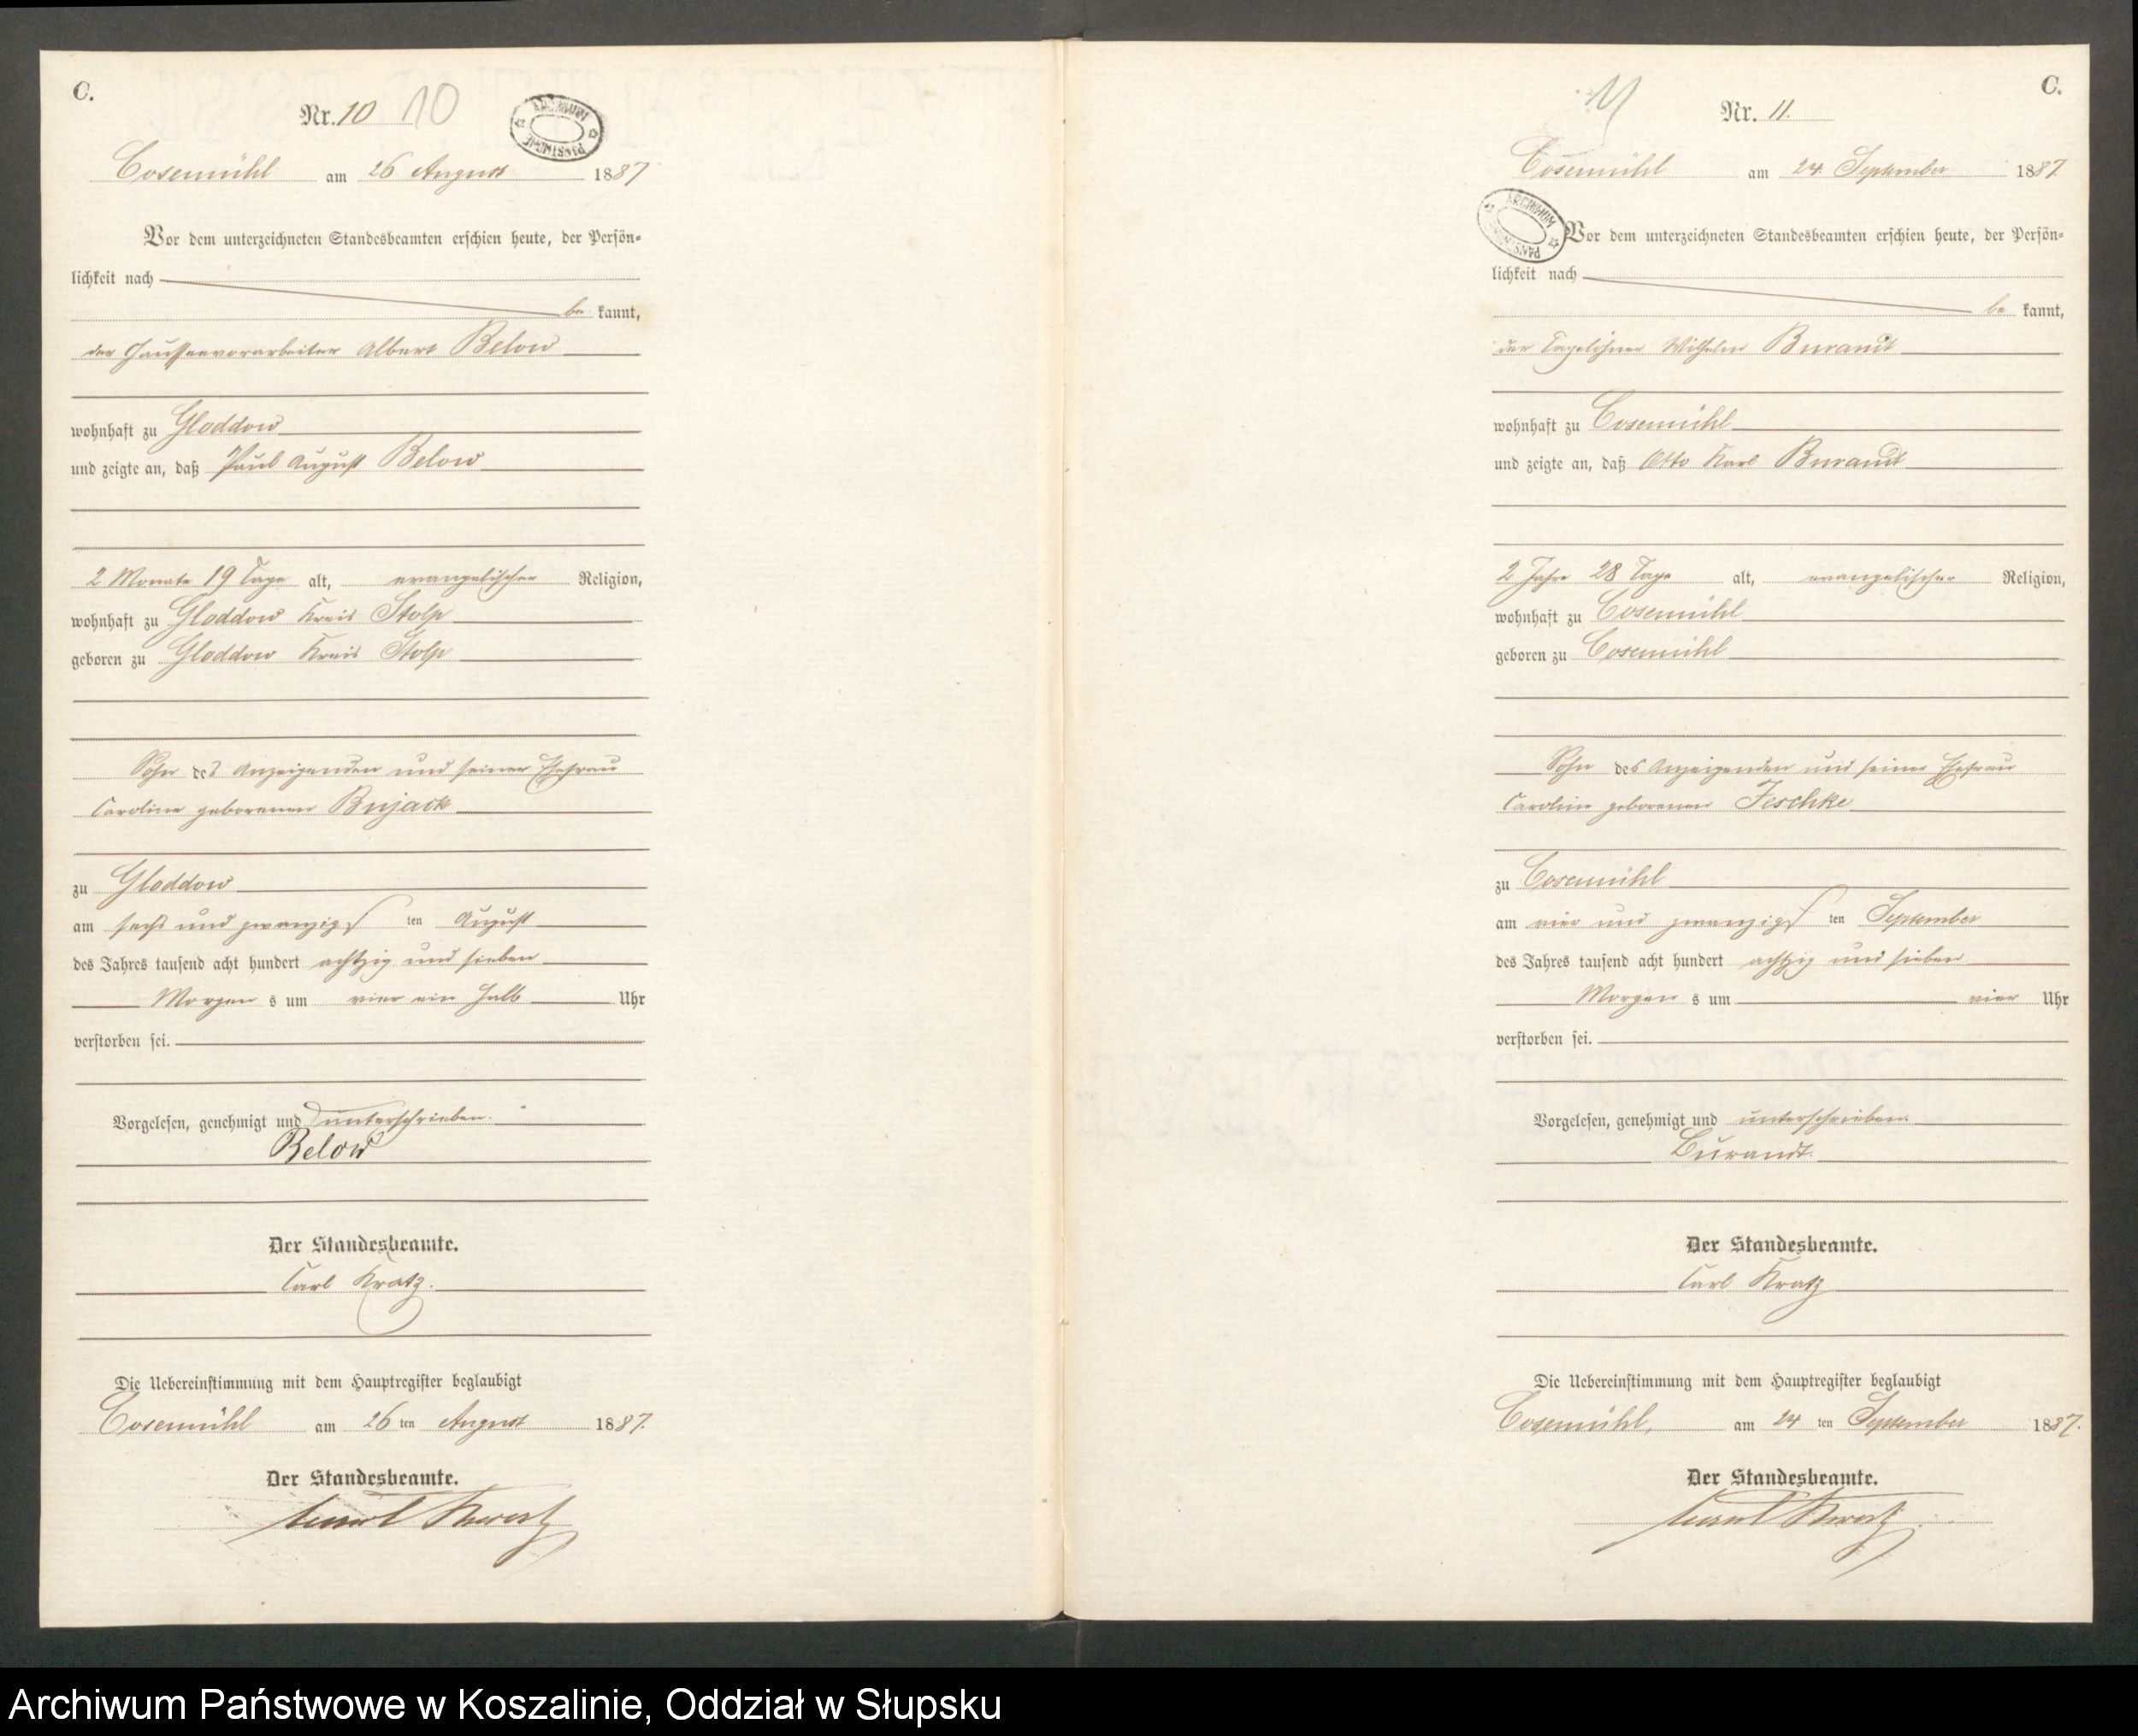 C.
Nr. 10 10
ARCHIWUM PAŃSTWOWE
Cosemühl am 26 August 1887
Vor dem unterzeichneten Standesbeamten erschien heute, der Persön-
lichkeit nach
be kannt,
der Chausseevorarbeiter Albert Below
wohnhaft zu Gloddow
und zeigte an, daß Paul August Below
2 Monate 19 Tage alt, evangelischer Religion,
wohnhaft zu Gloddow Kreis Stolp
geboren zu Gloddow Kreis Stolp
Sohn des Anzeigenden und seiner Ehefrau
Caroline geborenen Bujack
zu Gloddow
am sechs und zwanzigsten August
des Jahres tausend acht hundert achtzig und sieben
Morgens um vier ein halb Uhr
verstorben sei.
Vorgelesen, genehmigt und unterschrieben.
Below
Der Standesbeamte.
Carl Kratz.
Die Uebereinstimmung mit dem Hauptregister beglaubigt
Cosemühl am 26 ten August 1887.
Der Standesbeamte.
Carl Kratz
C.
11
Nr. 11.
Cosemühl am 24 September 1887.
ARCHIWUM PAŃSTWOWE
Vor dem unterzeichneten Standesbeamten erschien heute, der Persön-
lichkeit nach
be kannt,
der Tagelöhner Wilhelm Burandt
wohnhaft zu Cosemühl
und zeigte an, daß Otto Karl Burandt
2 Jahre 28 Tage alt, evangelischer Religion,
wohnhaft zu Cosemühl
geboren zu Cosemühl
Sohn des Anzeigenden und seiner Ehefrau
Caroline geborenen Jeschke
zu Cosemühl
am vier und zwanzigsten September
des Jahres tausend acht hundert achtzig und sieben
Morgens um vier Uhr
verstorben sei.
Vorgelesen, genehmigt und unterschrieben.
Burandt.
Der Standesbeamte.
Carl Kratz
Die Uebereinstimmung mit dem Hauptregister beglaubigt
Cosemühl, am 24 ten September 1887.
Der Standesbeamte.
Carl Kratz
Archiwum Państwowe w Koszalinie, Oddział w Słupsku